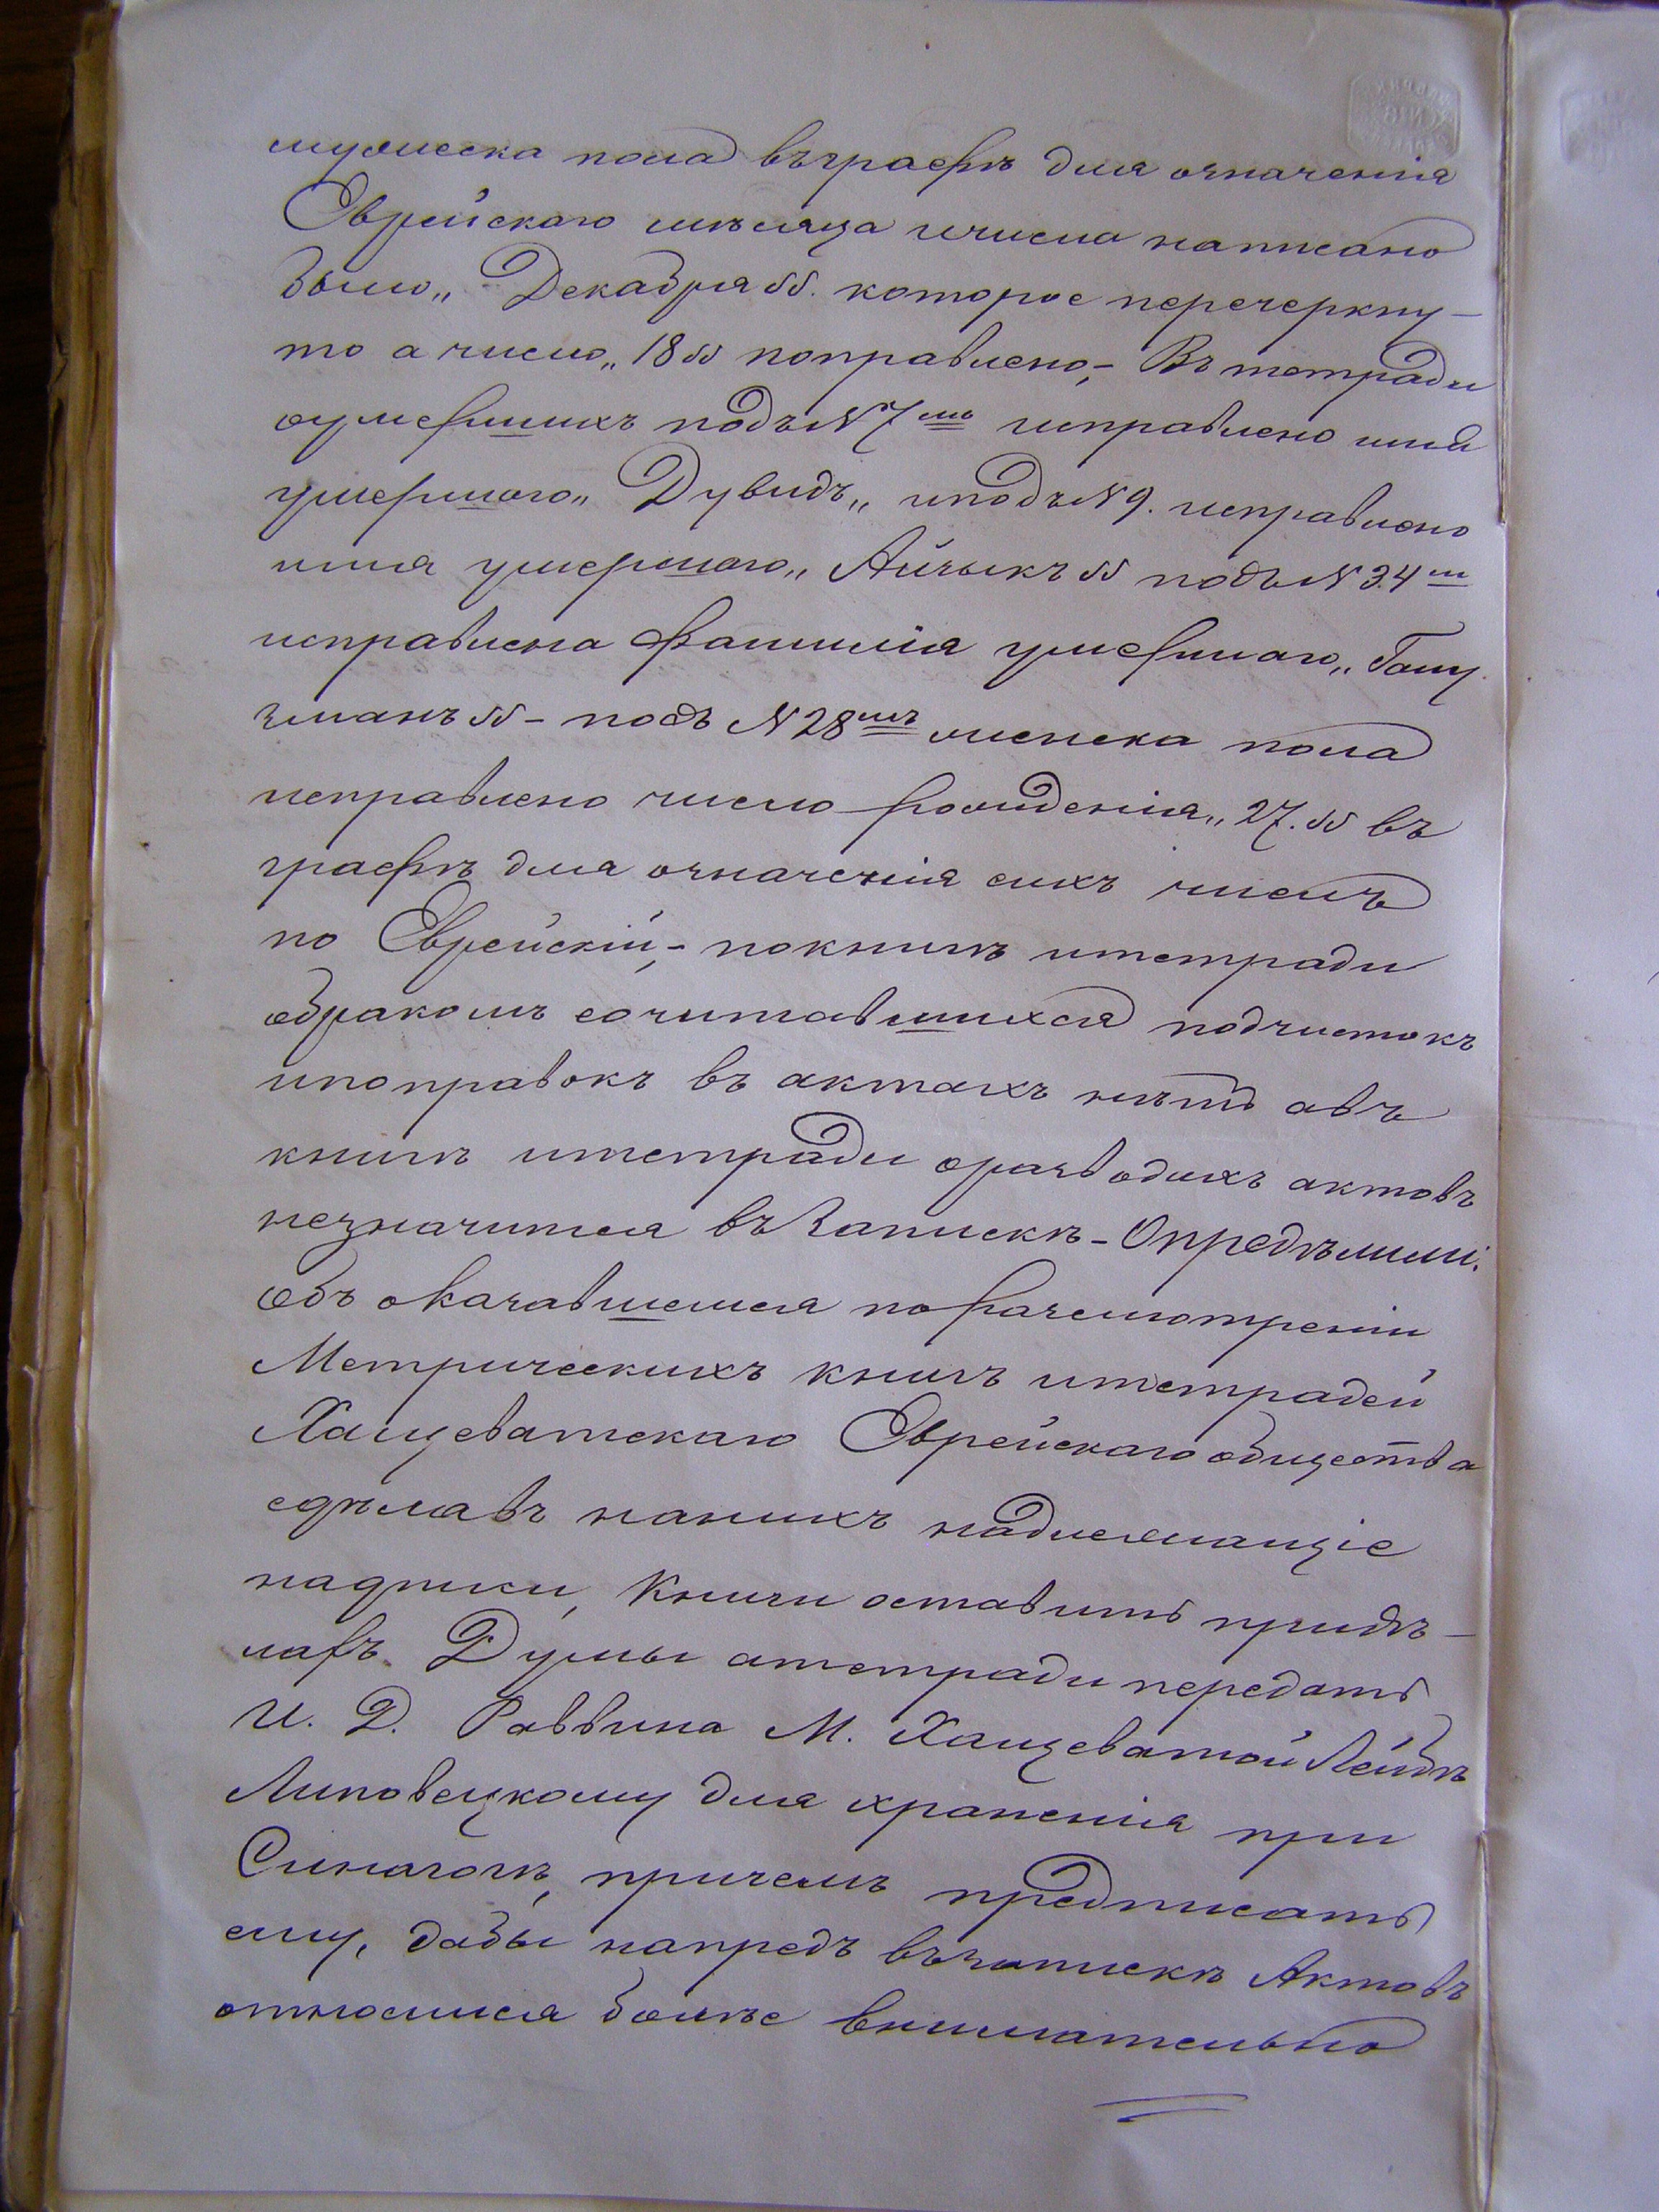 мужеска пола въ графѣ для означенія
Еврейскаго мѣсяца и числа написано
было „Декабря“. которое перечеркну-
то а число „18“ поправлено,- Въ тетради
о умершихъ подъ N 7мъ исправлено имя
умершаго „Дувидъ„ и подъ N 9. исправлено
имя умершаго „Айзыкъ“ подъ N 34м
исправлена фамилія умершаго „Гащу
зманъ“ - подъ N 28мъ женска пола
исправлено число рожденія „27.“ въ
графѣ для означенія сихъ числъ
по Еврейскій,- по книгѣ и тетради
о бракомъ сочитавшихся подчистокъ
и поправокъ въ актахъ нѣтъ а въ
книгѣ и тетради о разводахъ актовъ
незначится въ Запискѣ - Опредѣлили:
Объ оказавшемся по разсмотреніи
Метрическихъ книгъ и тетрадей
Хащеватскаго Еврейскаго общества
сдѣлавъ на нихъ надлежащіе
надписи, Книги оставить при дѣ-
лахъ Думы а тетради передать
И. Д. Раввина М. Хащеватой Лейбѣ
Липовецкому для храненія при
Синагогѣ, причемъ предписать
ему, дабы напредъ въ запискѣ Актовъ
относился болѣе внимательно